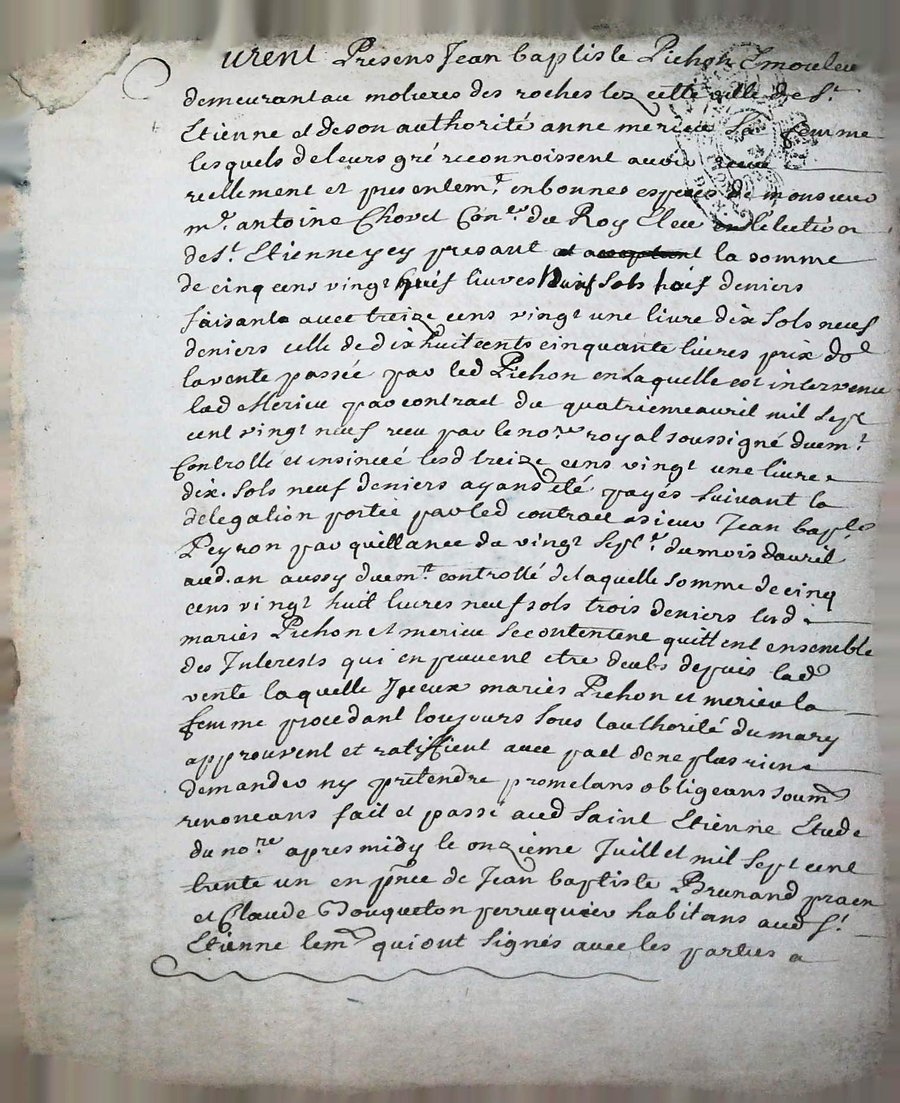 urent Presens Jean baptiste Pichon Emouleur
demeurant au molieres des roches lez cette ville de St
Etienne et de son authorité anne merieu sa femme
lesquels de leurs gré reconnoissent avoir receu
reellement et presentemt en bonnes especes de monsieur
mre antoine Chovet Coner du Roy Eleu en lelection
de St Etienne yey presant et acceptant la somme
de cinq cens vingt huit livres neuf sols trois deniers
faisante avec treize cens vingt une livre dix sols neuf
deniers celle de dixhuit cents cinquante livres prix de
la vente passée par led Pichon en laquelle est intervenue
lad Merieu par contract du quatrieme avril mil sept
cent vingt neuf receu par le nore royal soussigné duemt
Controllé et insinué lesd treize cens vingt une livre
dix sols neuf deniers ayans été payés suivant la
delegation portée par led contract a sieur Jean baptte
Peyron par quittance du vingt sept du mois davril
aud. an aussy duemt controllé de laquelle somme de cinq
cens vingt huit livres neuf sols trois deniers lesd
mariés Pichon et merieu se contentent quittent ensemble
des Interests qui en peuvent etre deubs depuis lad
vente laquelle Iceux mariés Pichon et merieu la
femme procedant toujours sous lauthorité du mary
approuvent et ratiffient avec pact de ne plus rien
demander ny pretendre prometans obligeans soum
renonceans fait et passé aud Saint Etienne Etude
du nore apres midy le onzieme Juillet mil sept cent
trente un en pnce de Jean baptiste Brunand praen
et Claude Bouqueton perruquier habitans aud St
Etienne tem qui ont signés avec les parties a